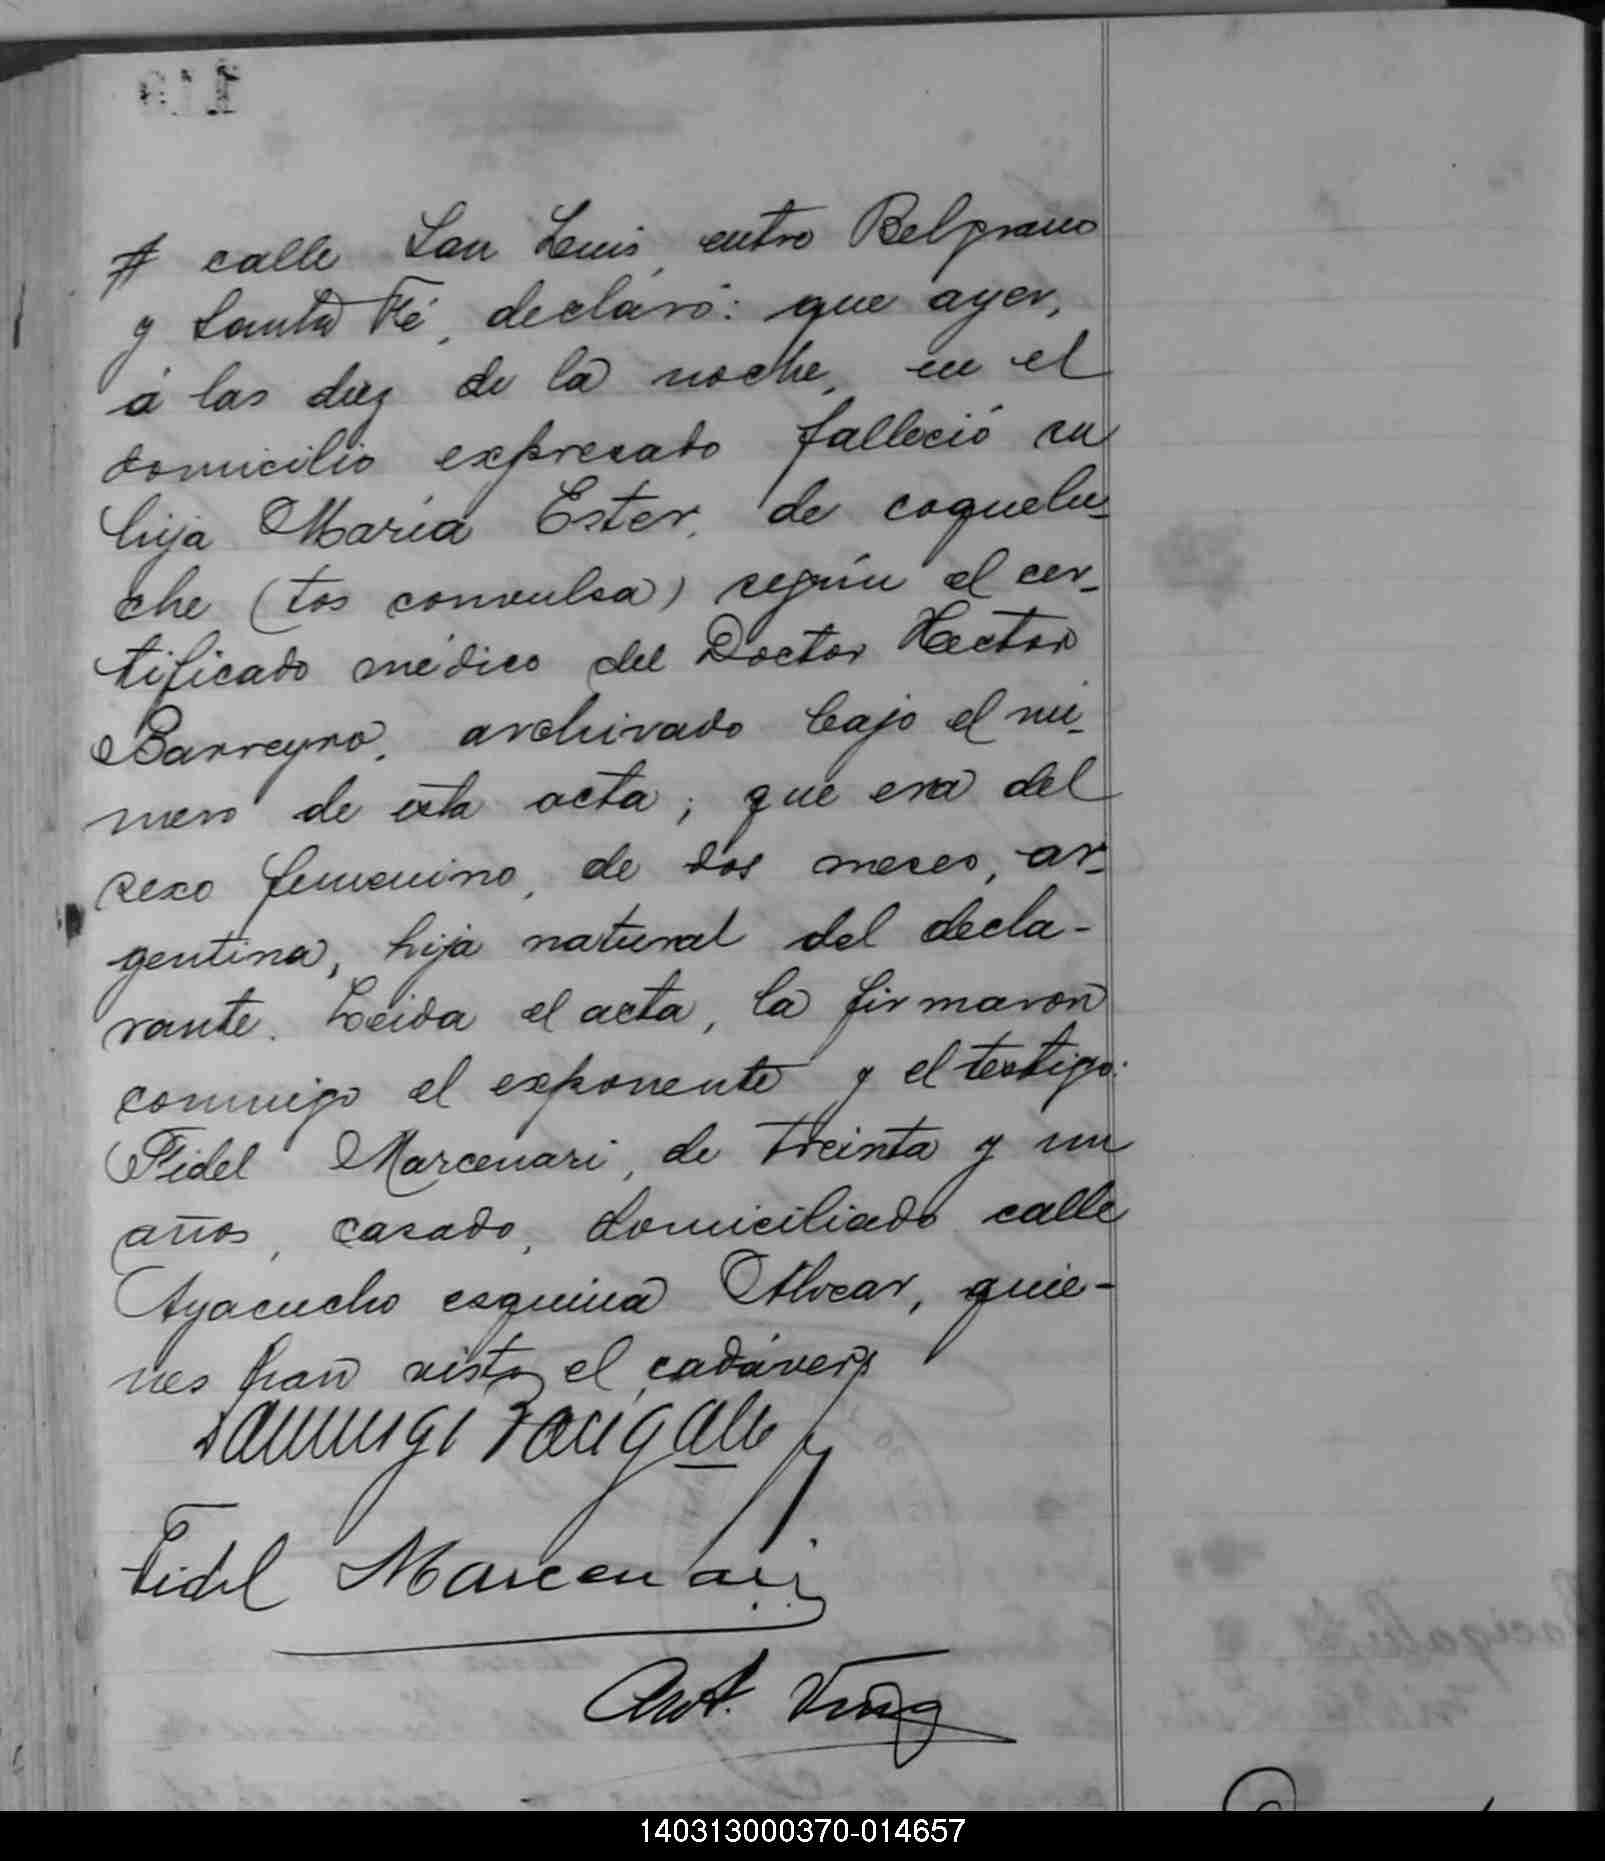 calle San Luis, entre Belgrano
y Santa Fé, declaró: que ayer,
á las diez de la noche, en el
domicilio expresado falleció su
hija María Ester, de coquelu-
che (tos convulsa) según el cer-
tificado médico del Doctor Hector
Barreyro, archivado bajo el nú-
mero de esta acta; que era del
sexo femenino, de dos meses, ar-
gentina, hija natural del decla-
rante. Leida el acta, la firmaron
conmigo el exponente y el testigo:
Fidel Marcenari, de treinta y un
años, casado, domiciliado calle
Ayacucho esquina Alvear, quie-
nes han visto el cadáver
Fidel Marcenari
Ant.
140313000370-014657